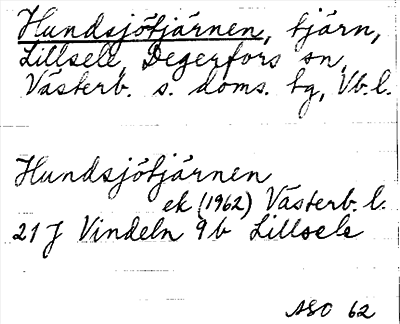 Hundsjötjärnen, tjärn,
Lillsele, Degerfors sn,
Västerb. s. doms. tg, Vb. l.
Hundsjötjärnen
ek (1962) Västerb. l.
21 J Vindeln 9 b Lillsele
ASO 62